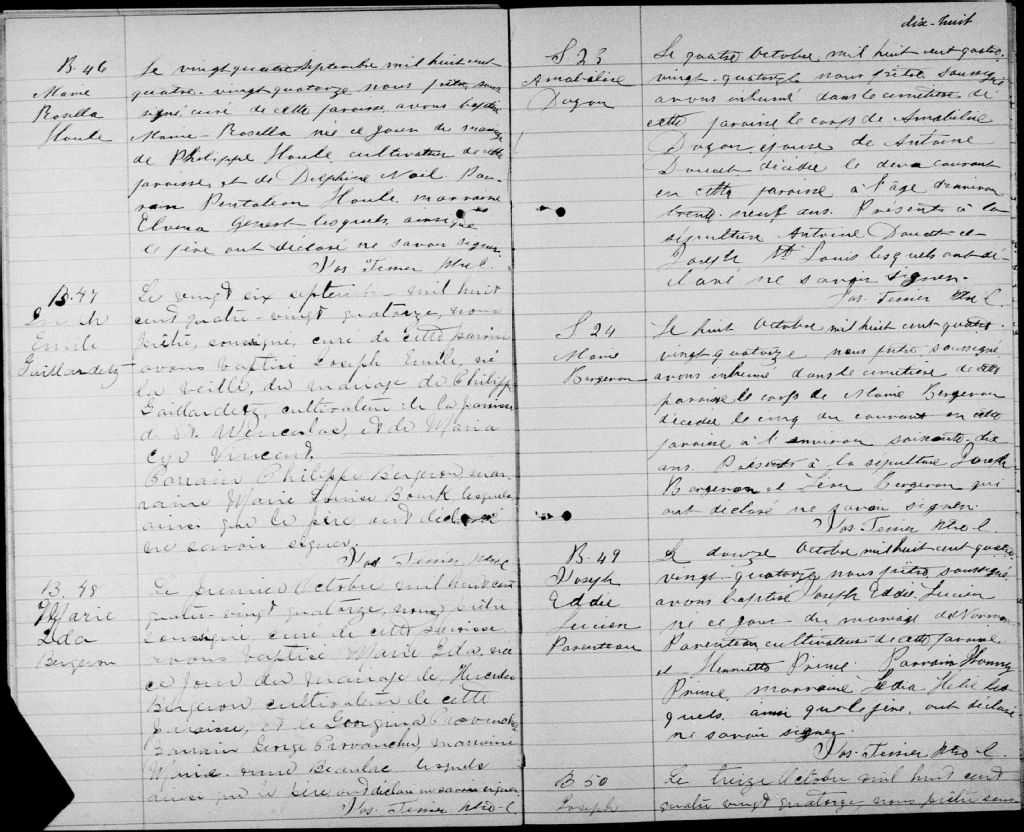 B. 46
Marie
Rosella
Houle
Le vingt quatre septembre mil huit cent
quatre-vingt quatorze nous prêtre sous
signé curé de cette paroisse avons baptisé
Marie-Rosella née ce jour du mariage
de Philippe Houle cultivateur de cette
paroisse, et de Delphine Noël Par-
rain Pentaléon Houle marraine
Elvina Genest lesquels ainsi que
le père ont déclaré ne savoir signer.
Jos. Tessier Ptre C.
B. 47
Joseph
Emile
Gaillardetz
Le vingt six septembre mil huit
cent quatre-vingt quatorze, nous
prêtre, soussigné, curé de cette paroisse
avons baptisé Joseph Emile, né
la veille, du mariage de Philippe
Gaillardetz, cultivateur de la paroisse
de St. Wenceslas, et de Maria
Cyr Vincent.
Parrain Philippe Bergeron mar-
raine Marie Louise Bourk lesquels
ainsi que le père ont déclaré
ne savoir signer.
Jos Tessier Ptre C
B. 48
Marie
Lda
Bergeron
Le premier Octobre mil huit cent
quatre-vingt quatorze, nous prêtre
soussigné curé de cette paroisse
avons baptisé Marie Lda, née
ce jour du mariage de Hercule
Bergeron cultivateur de cette
paroisse, et de Georgina Provencher
Parrain George Provencher marraine
Marie Beaulac lesquels
ainsi que le père ont déclaré ne savoir signer
Jos. Tessier Ptre C.
dix-huit
S. 23
Amabelise
Dugon
Le quatre Octobre mil huit cent quatre-
vingt-quatorze nous prêtre soussigné
avons inhumé dans le cimetière de
cette paroisse le corps de Amabelise
Dugon épouse de Antoine
Doucet décédée le deux courant
en cette paroisse à l'âge d'environ
trente-neuf ans. Présents à la
sépulture Antoine Doucet et
Joseph St Louis lesquels ont dé-
claré ne savoir signer.
Jos. Tessier Ptre C.
S. 24
Marie
Bergeron
Le huit Octobre mil huit cent quatre-
vingt quatorze nous prêtre soussigné
avons inhumé dans le cimetière de cette
paroisse le corps de Marie Bergeron
décédée le cinq du courant en cette
paroisse à l'environ soixante-dix
ans. Présents à la sépulture Joseph
Bergeron et Bergeron qui
ont déclaré ne savoir signer.
Jos. Tessier Ptre C.
B. 49
Joseph
Eddie
Lucien
Parenteau
Le douze Octobre mil huit cent quatre
vingt-quatorze nous prêtre soussigné
avons baptisé Joseph Eddie Lucien
né ce jour du mariage de
Parenteau cultivateur de cette paroisse
et Henriette Prince. Parrain
Prince, marraine Hélie les-
quels ainsi que le père, ont déclaré
ne savoir signer.
Jos. Tessier Ptre C.
B. 50
Joseph
Le treize Octobre mil huit cent
quatre vingt quatorze nous prêtre sous